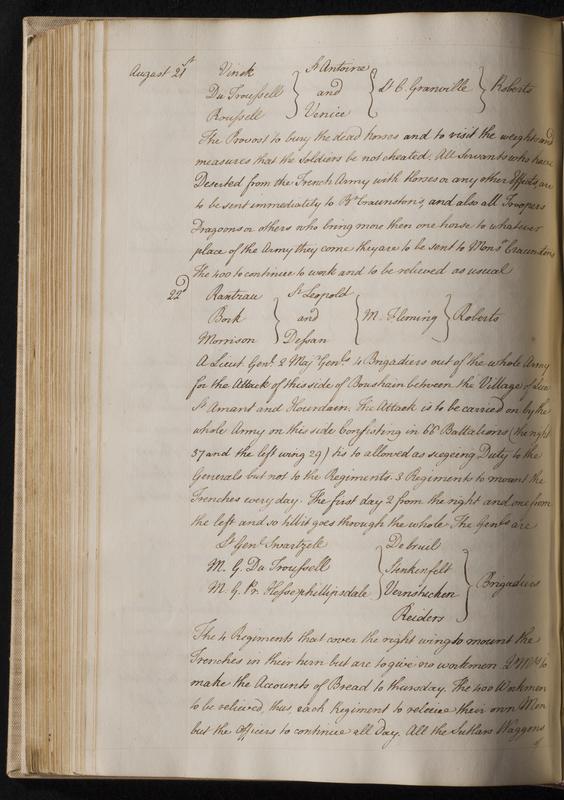 August 21st Vink St Antoine
Du Troussell and Lt C. Granville Roberts
Roussell Venice
The Provost to bury the dead horses and to visit the weights and
measures that the Soldiers be not cheated. All Servants who have
Deserted from the French Army with Horses or any other Effects, are
to be sent immediatly to Br Craunston's, and also all Troopers
Dragoons or others who bring more then one horse to whatever
place of the Army they come they are to be sent to Monsr Craunstons
The 400 to continue to work and to be relieved as usual
22d Rantzau St Leopold
Bork and M. Fleming Roberts
Morrison Dessan
A Lieut Genl 2 Maj Genls 4 Brigadiers out of the whole Army
for the Attack of this side of Boushain between the Village of
St Amant and Hourdain. The Attack is to be carried on by the
whole Army on this side Consisting in 66 Battalions (the right
37 and the left wing 29) tis to allowed as siegeing Duty to the
Generals but not to the Regiments. 3 Regiments to mount the
Trenches every day. The first day 2 from the right and one from
the left and so till it goes through the whole The Genls are
Lt Genl Swartzell Debruil
M. G. Du Troussell Stenkenfelt
M. G. Pr. Hessephillipsdale Vernshicken Brigadiers
Reiders
The 4 Regiments that cover the right wing to mount the
Trenches in their turn but are to give no workmen to
make the Accounts of Bread to thursday. The 400 Workmen
to be relieved thus, each Regiment to releive their own Men
but the Officers to continue all day. All the Sutlars Waggons
of